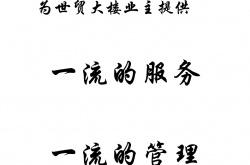 为世贸大楼业主提供
一流的服务
一流的管理